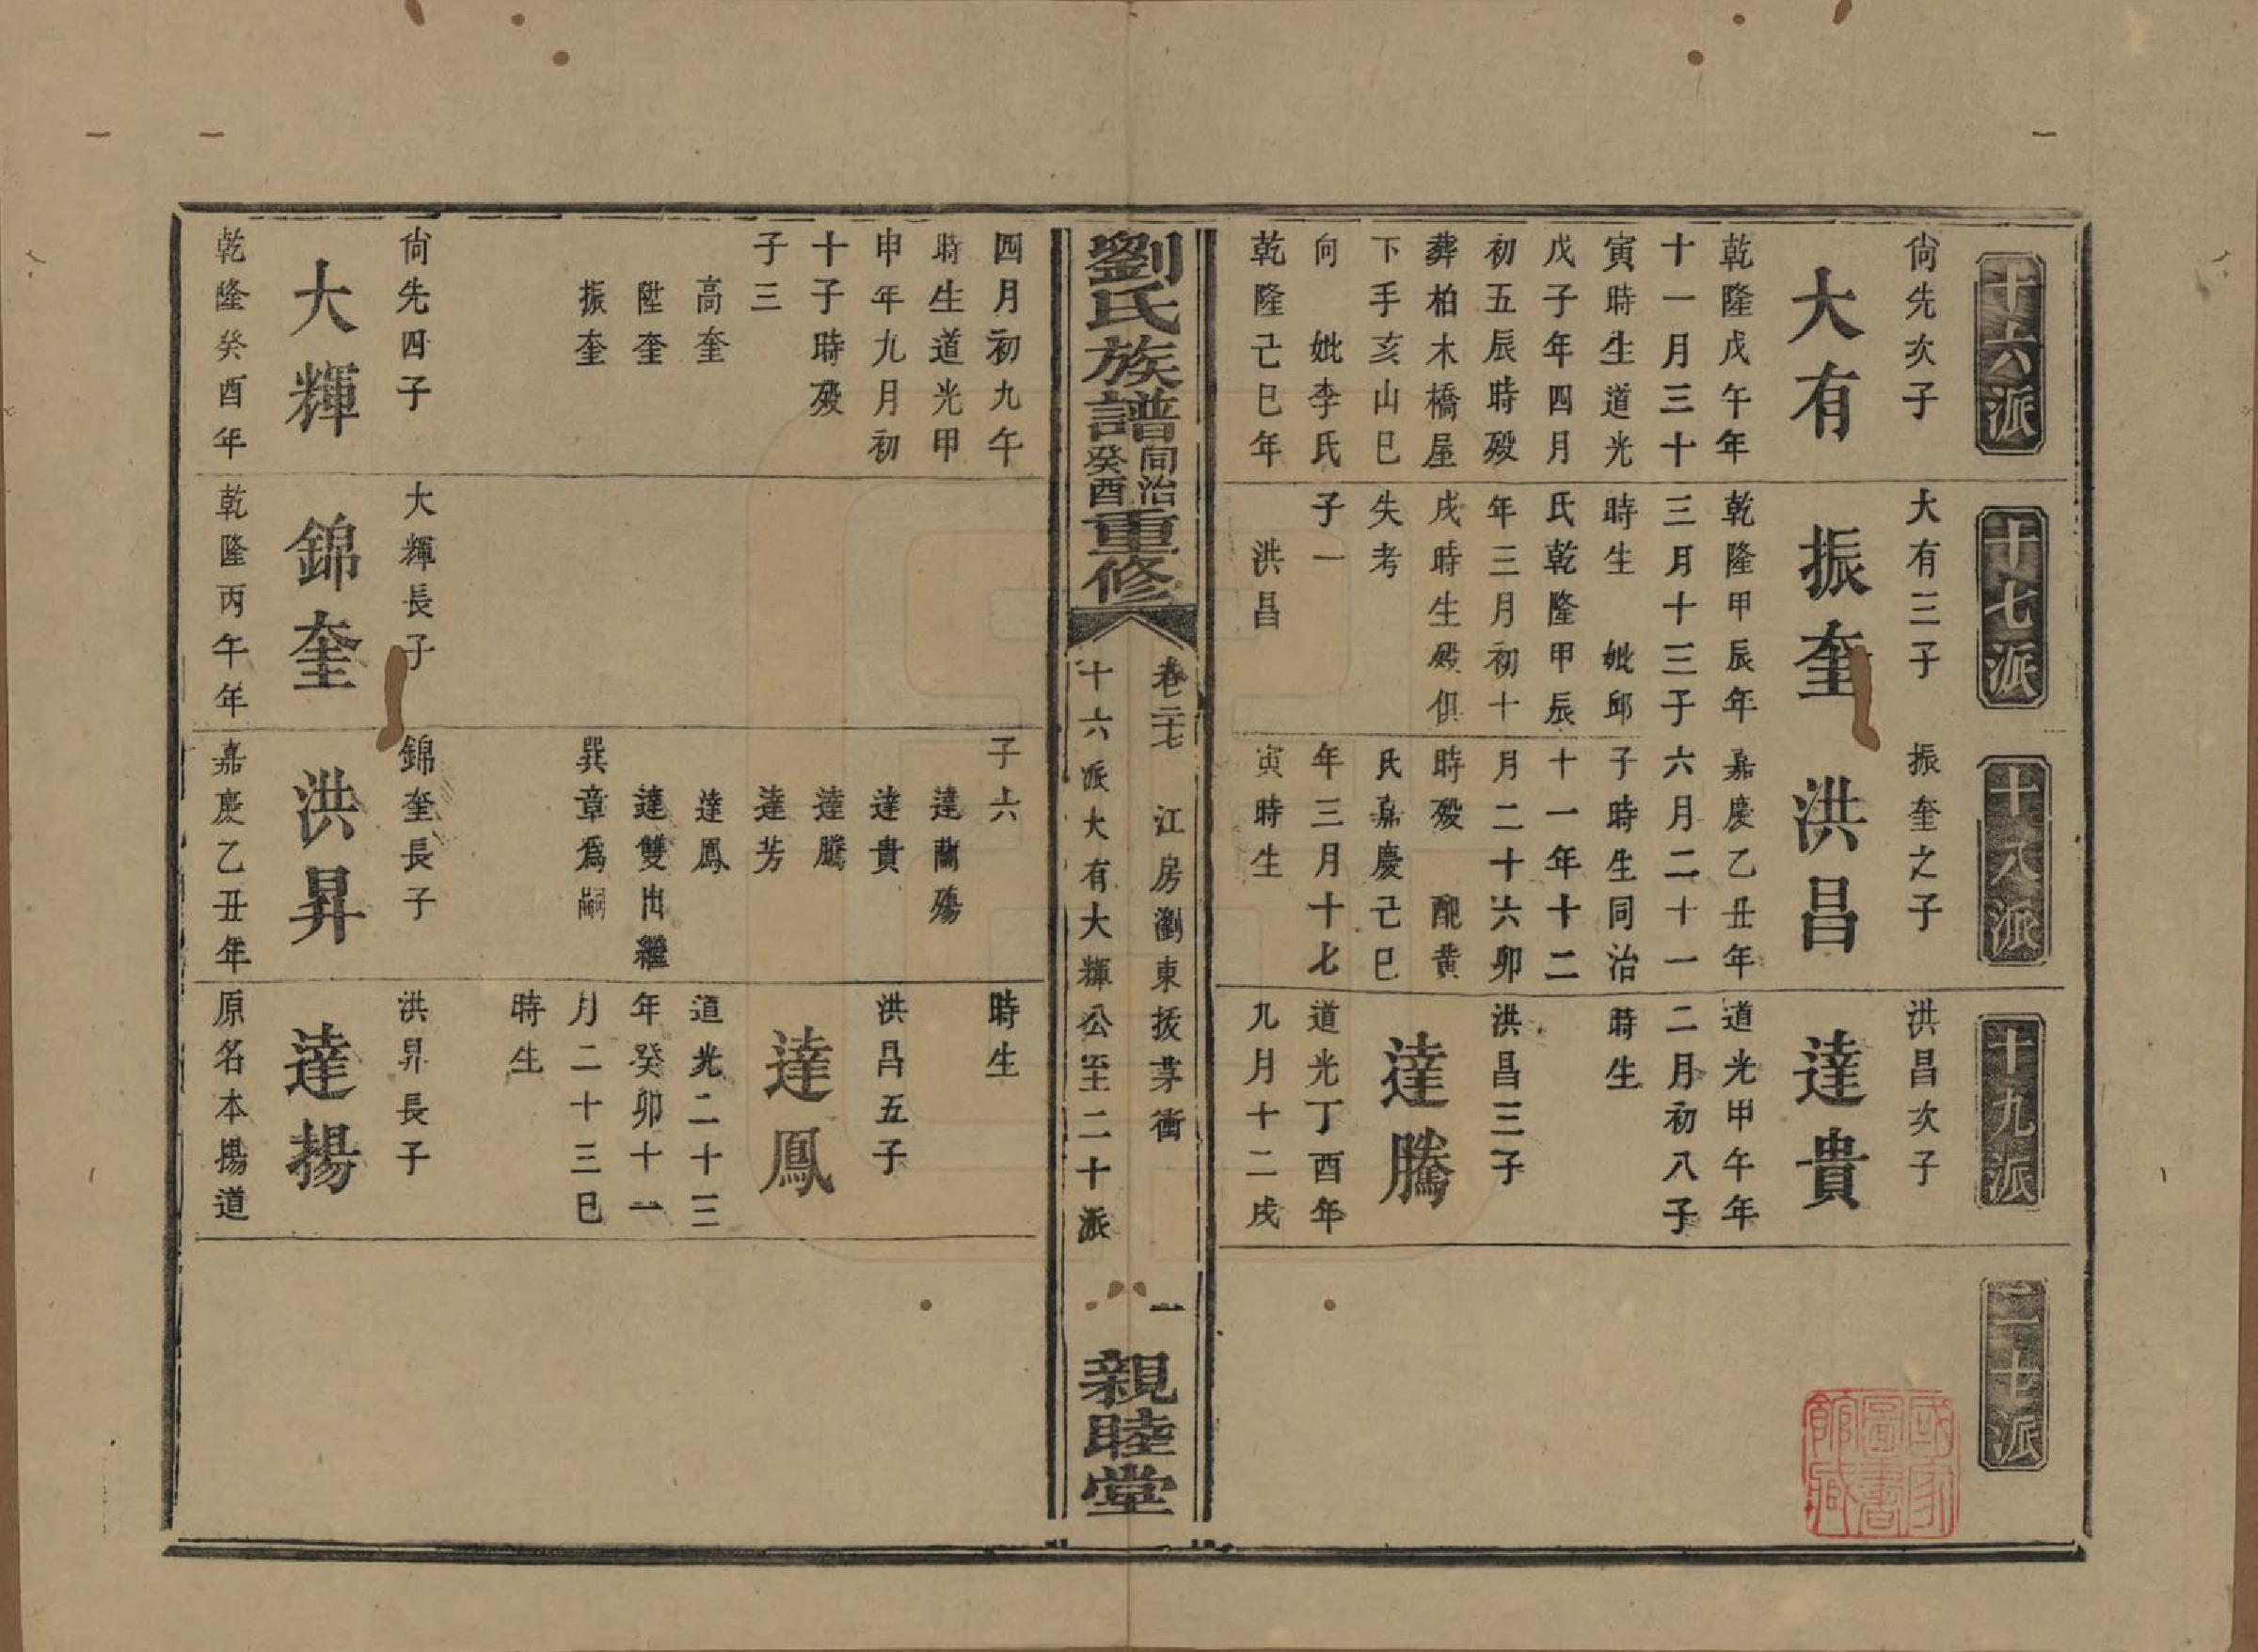 十六派
尙先次子
大有
乾隆戊午年
十一月三十
寅時生道光
戊子年四月
初五辰時殁
葬柏木橋屋
下手亥山巳
向　妣李氏
乾隆己巳年
十七派
大有三子
振奎
乾隆甲辰年
三月十三子
時生　妣邱
氏乾隆甲辰
年三月初十
戌時生殁俱
失考
子一
洪昌
十八派
振奎之子
洪昌
嘉慶乙丑年
六月二十一
子時生同治
十一年十二
月二十六卯
時殁　配黄
氏嘉慶己巳
年三月十七
寅時生
十九派
洪昌次子
達貴
道光甲午年
二月初八子
時生
洪昌三子
達騰
道光丁酉年
九月十二戌
二十派
國家
圖書
館藏
劉氏族譜同治癸酉重修
卷二七　江房瀏東拔茅衝
十六派大有大輝公至二十派
一
親睦堂
四月初九午
時生道光甲
申年九月初
十子時殁
子三
高奎
陞奎
振奎
尙先四子
大輝
乾隆癸酉年
大輝長子
錦奎
乾隆丙午年
子六
達蘭殤
達貴
達騰
達芳
達鳳
達雙出繼
巽章爲嗣
錦奎長子
洪昇
嘉慶乙丑年
時生
洪昌五子
達鳳
道光二十三
年癸卯十一
月二十三巳
時生
洪昇長子
達揚
原名本揚道